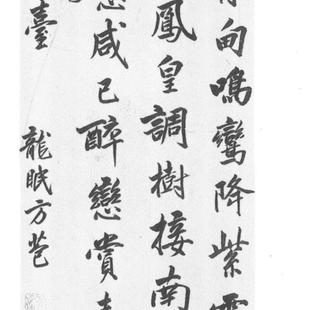 甸鳴鸞降紫
鳳皇調樹接南
咸已醉戀賞
臺 龍眠方苞